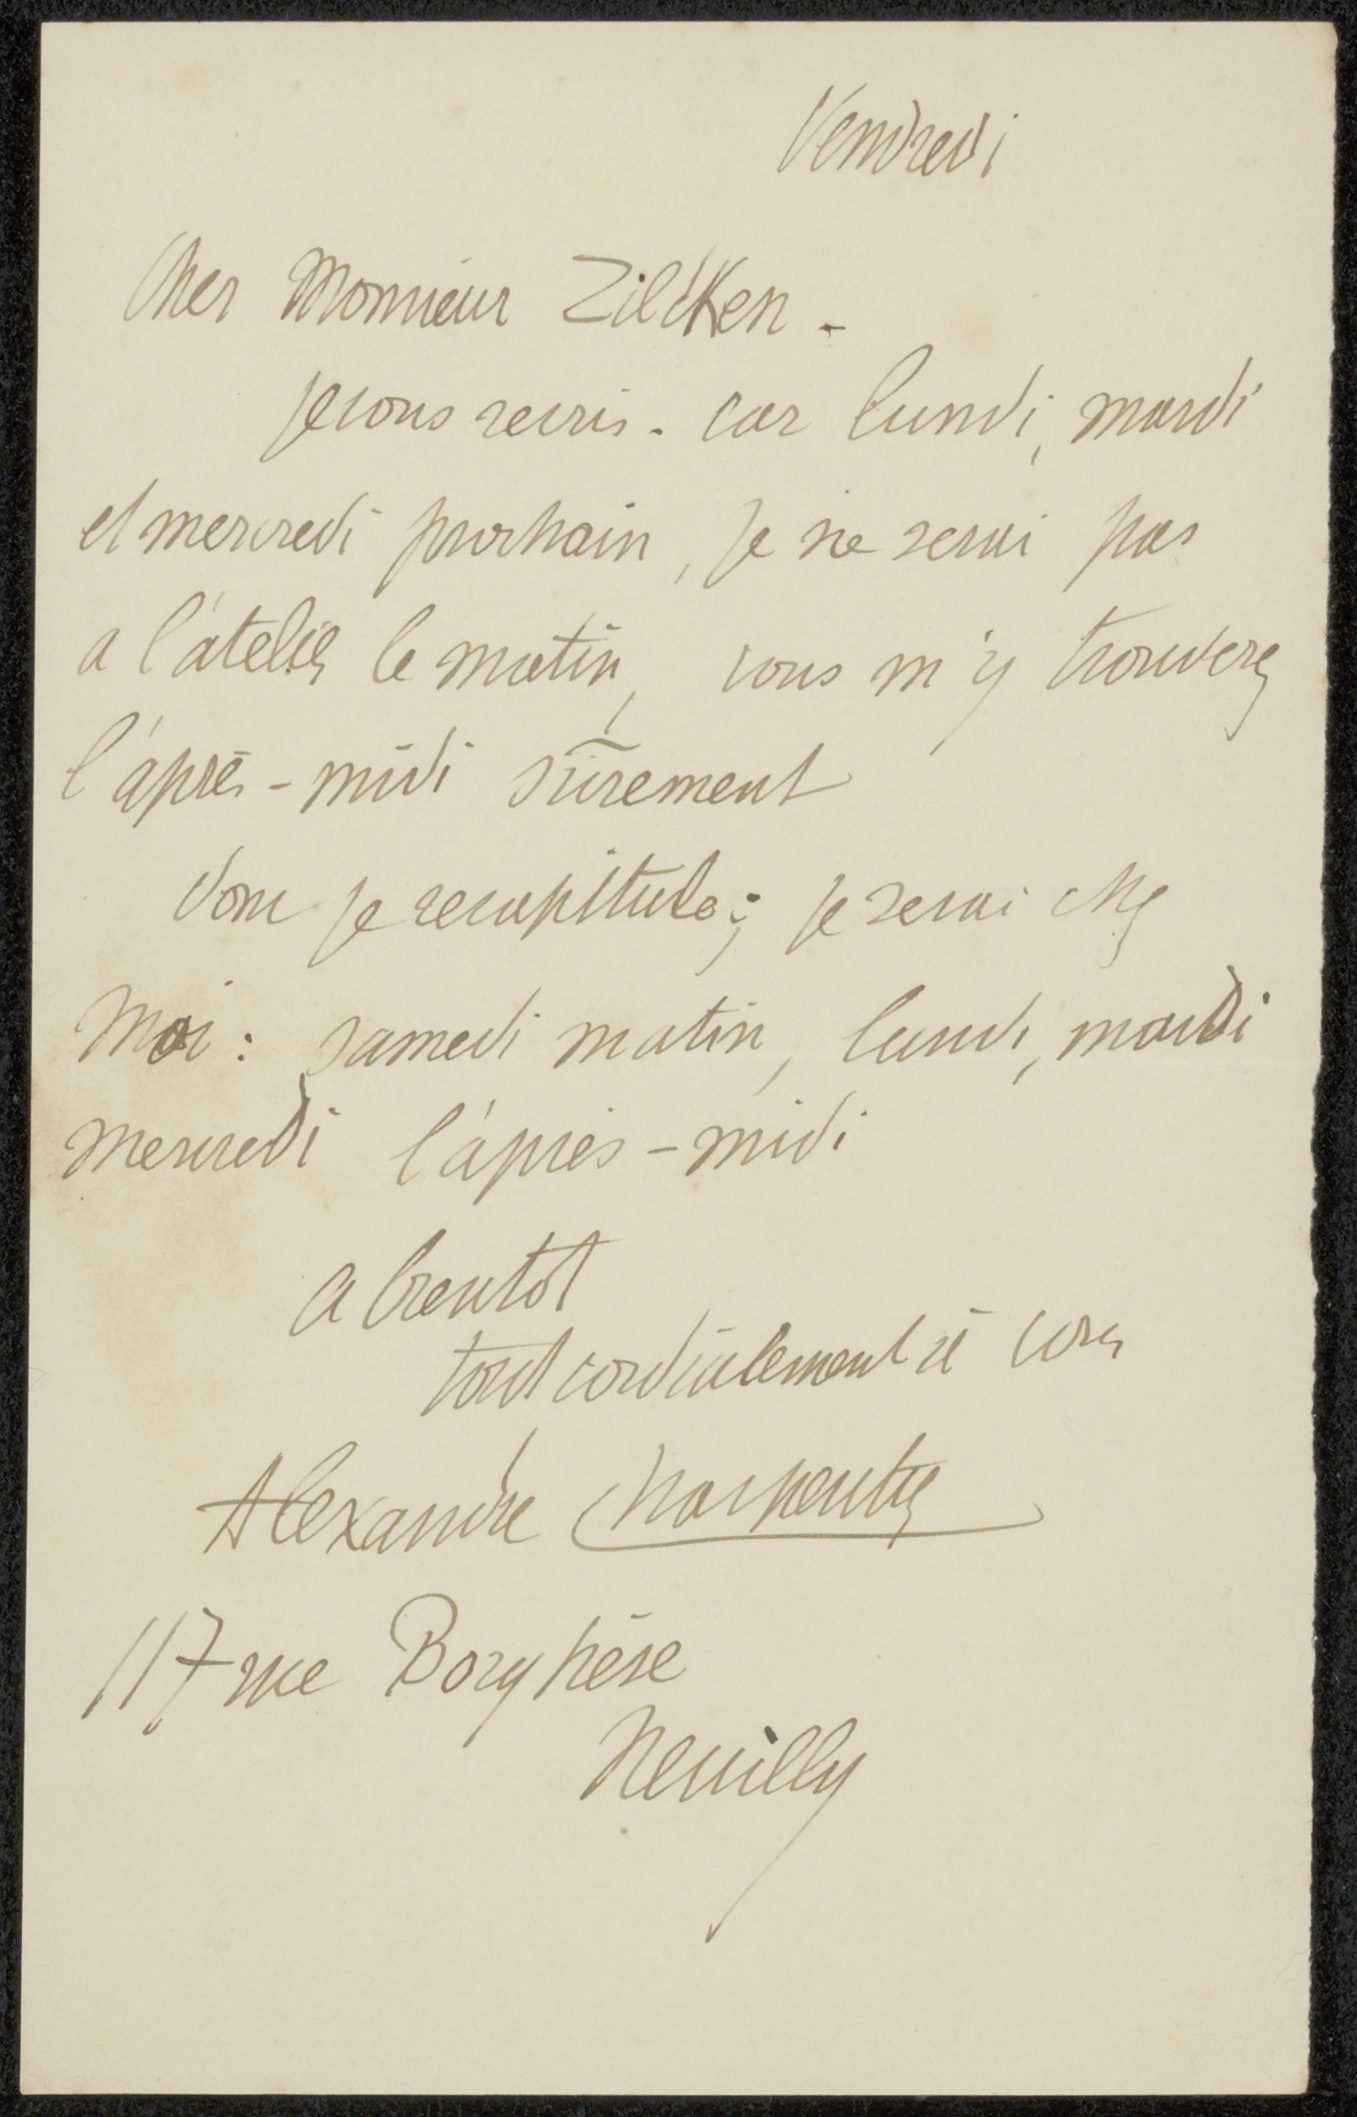 Vendredi
Cher Monsieur Zilcken.
je vous recris. car lundi, mardi
et mercredi prochain, je ne serai pas
a l'atelier le matin, vous m'y trouverez
l'après-midi sûrement
donc je recapitule; je serai chez
Moi: samedi matin, lundi, mardi
mercredi l'après-midi
a bientôt
tout cordialement à vous
Alexandre Charpentier
117 rue Borghèse
Neuilly